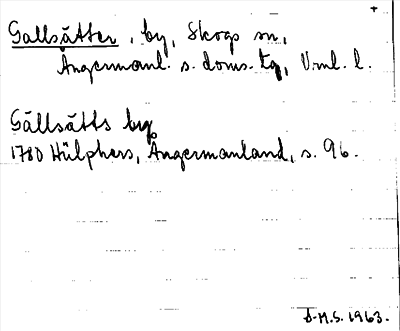 +
Gallsätter, by, Skogs sn,
Ångermanl. s. doms. tg, Vnl. l.
Gällsätts by
1780 Hülphers, Ångermanland, s. 96.
S.H.S. 1963.